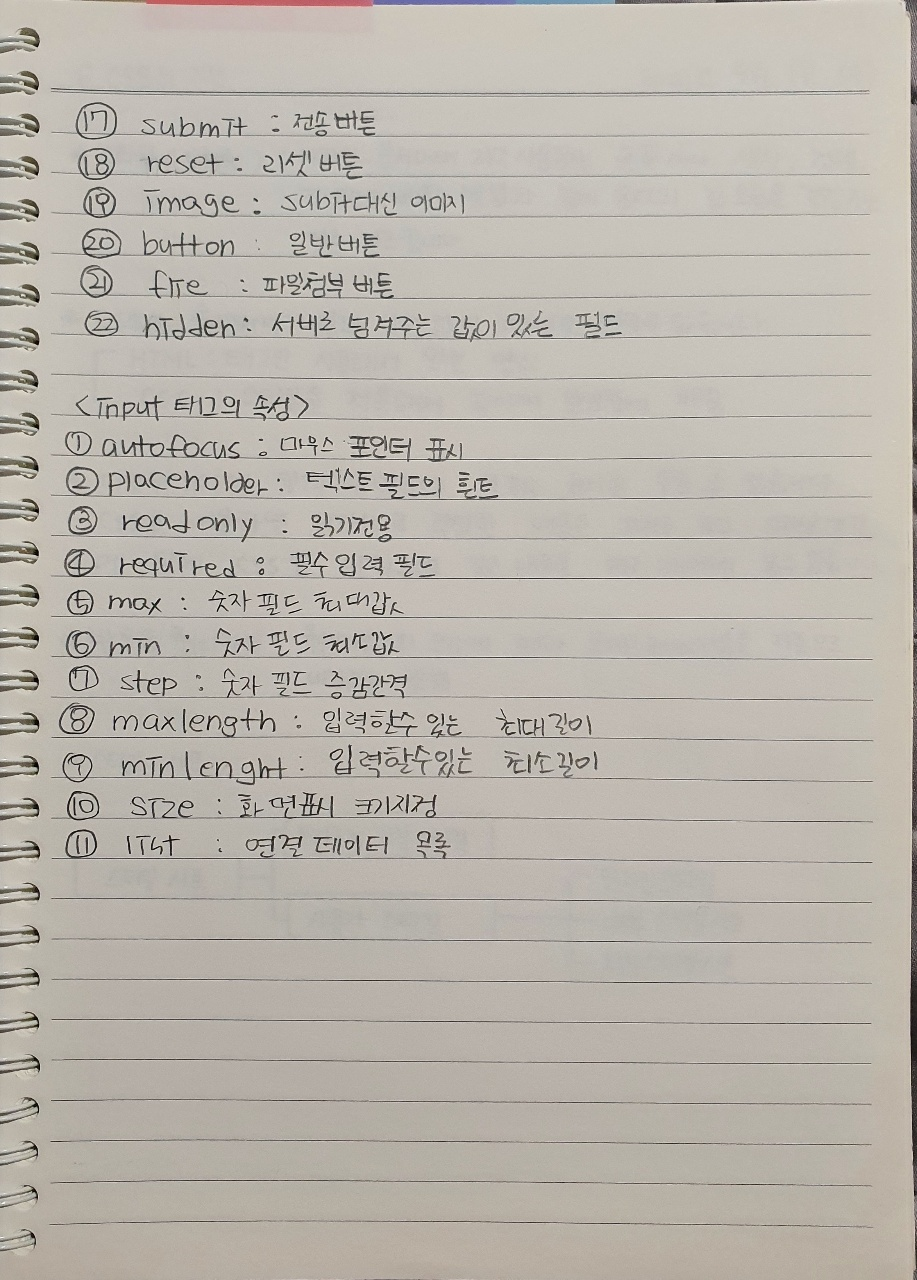 ⑰ submit : 전송버튼
⑱ reset : 리셋버튼
⑲ image : subit대신 이미지
⑳ button : 일반버튼
㉑ file : 파일첨부 버튼
㉒ hidden : 서버로 넘겨주는 값이 있는 필드
<input 태그의 속성>
① autofocus : 마우스 포인터 표시
② placeholder : 텍스트 필드의 힌트
③ readonly : 읽기전용
④ required : 필수입력 필드
⑤ max : 숫자 필드 최대값
⑥ min : 숫자 필드 최소값
⑦ step : 숫자 필드 증감간격
⑧ maxlength : 입력할수 있는 최대길이
⑨ minlenght : 입력할수있는 최소길이
⑩ size : 화면표시 크기지정
⑪ list : 연결 데이터 목록